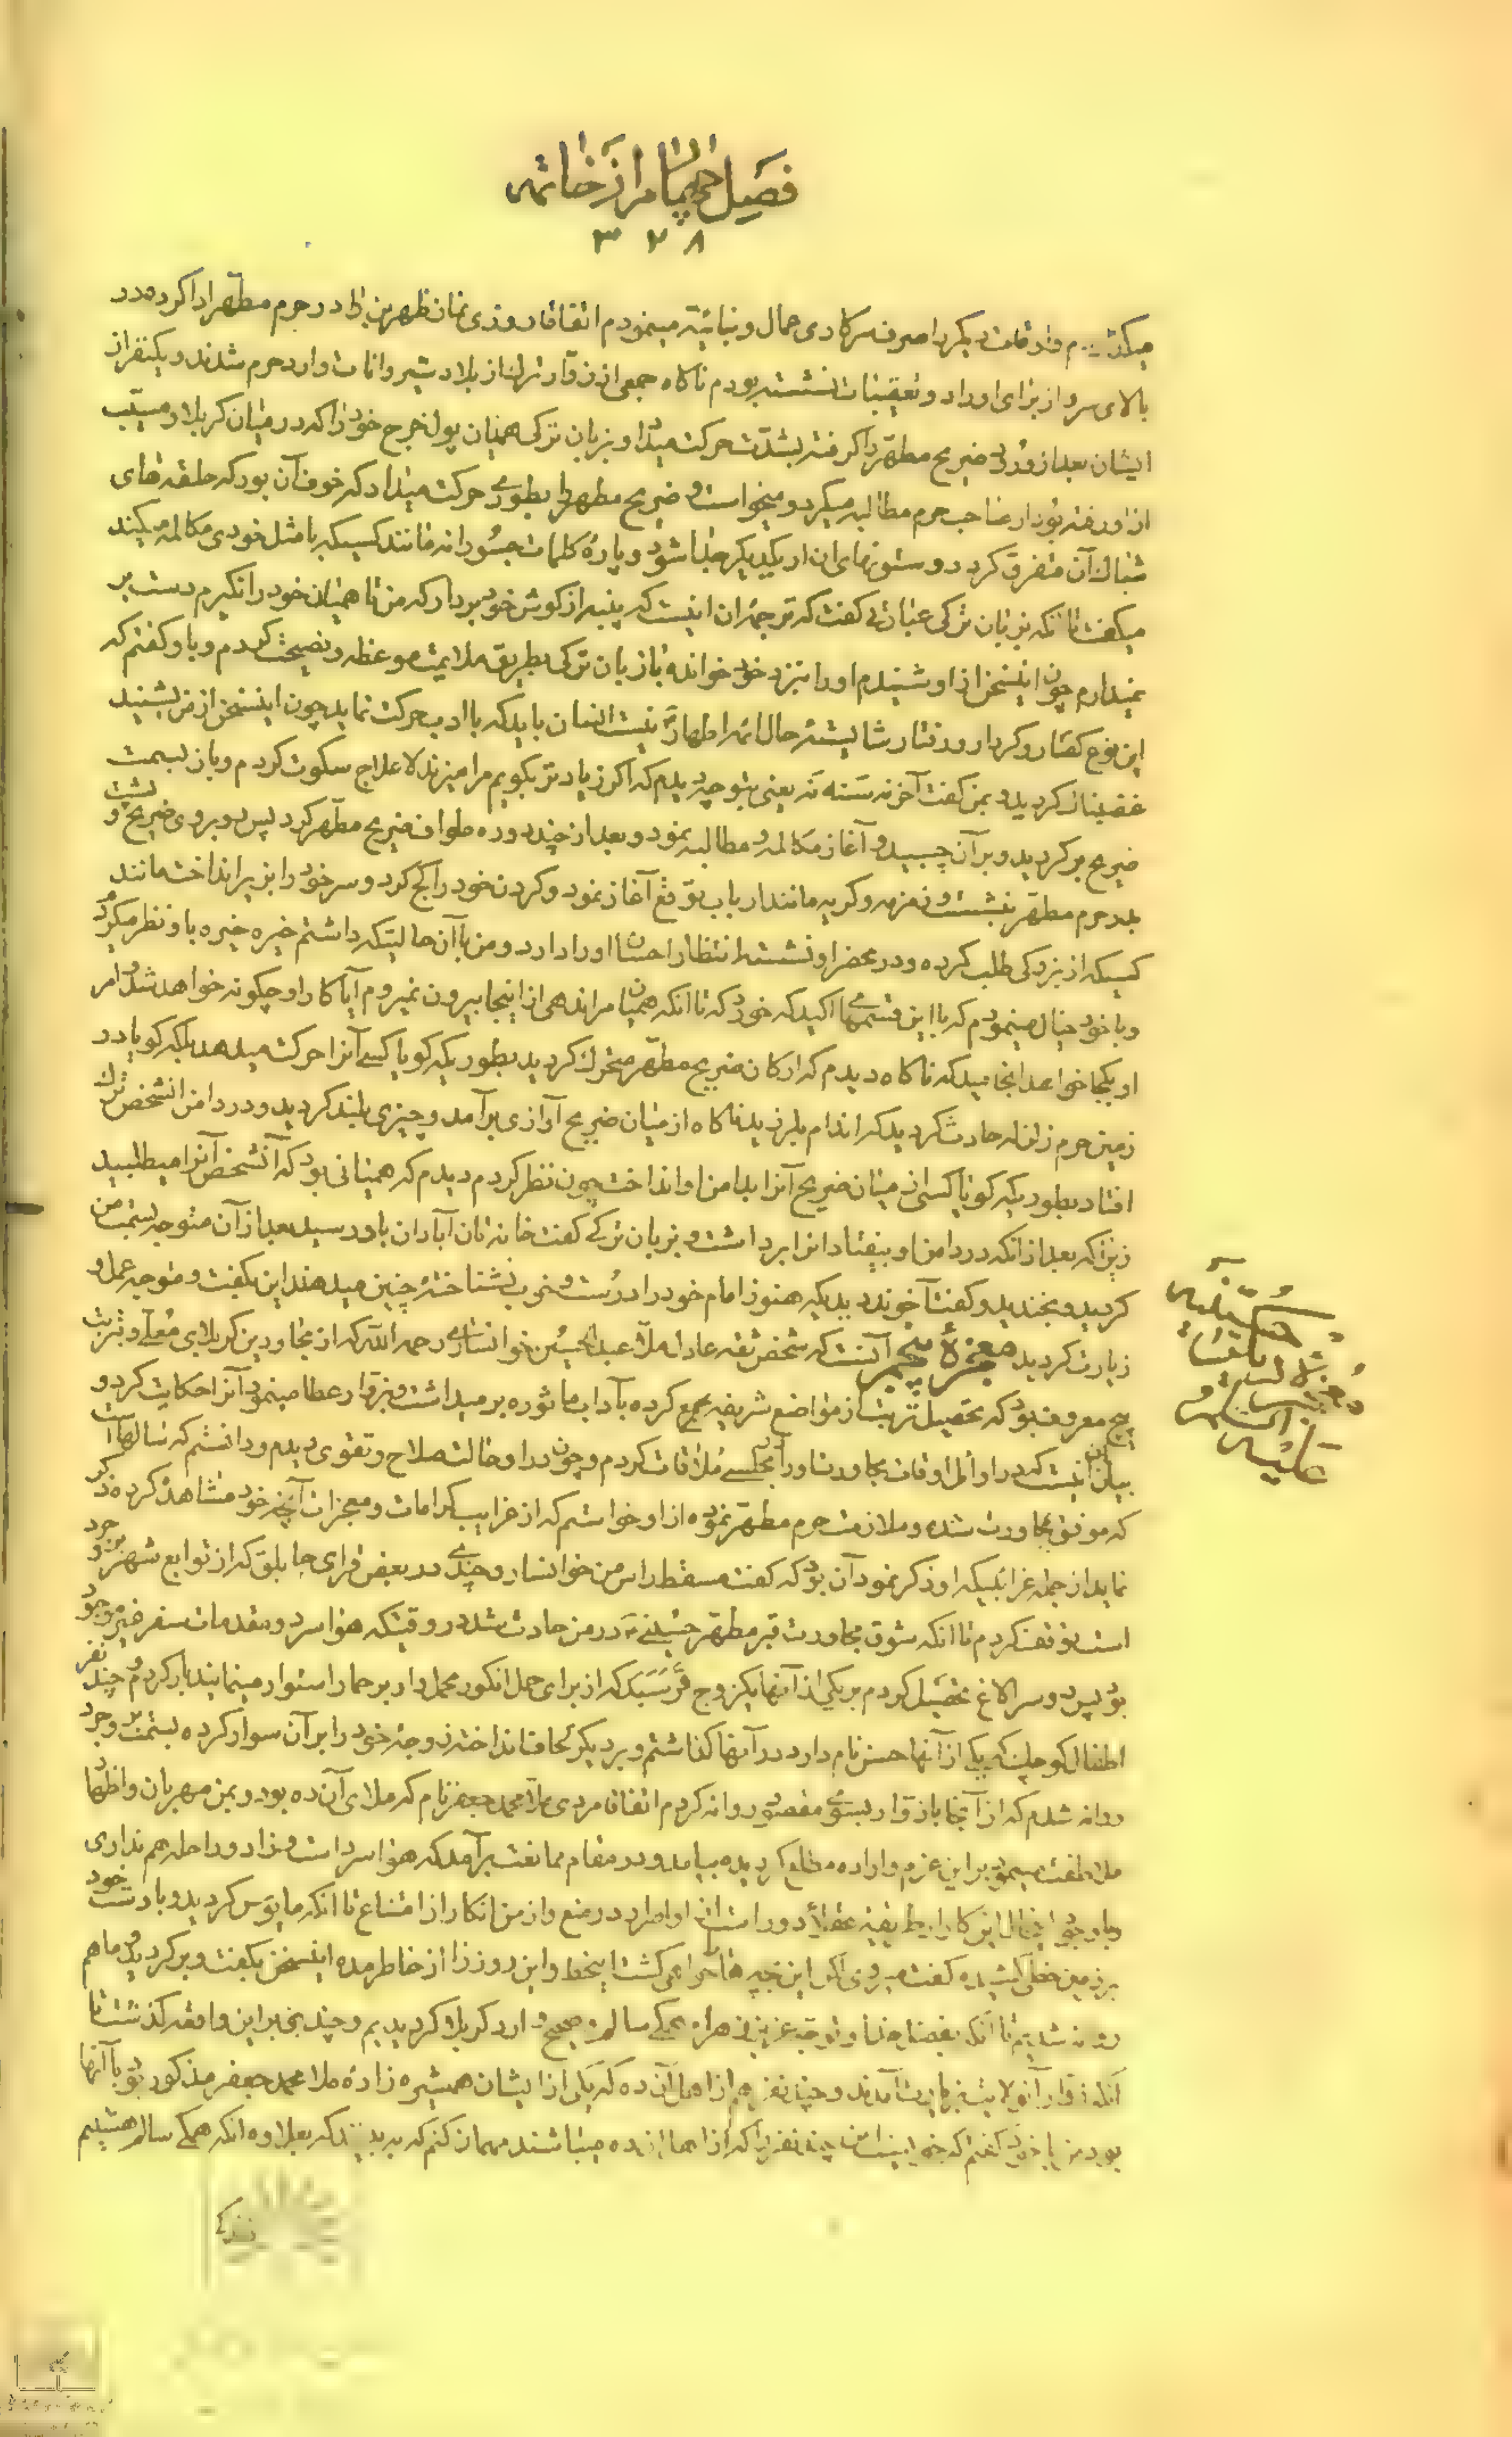 فصل چهارم از خاتمه
۳۲۸
و اوقات دیگر را صرف سرکاری عمال و بنائیه مینمودم اتفاقا روزی نماز ظهرین را در حرم مطهر ادا کرده در
بالای سر از برای اوراد و تعقیبات نشسته بودم ناگاه جمعی از زوار ترک از بلاد شیروانات وارد حرم شدند و یکنفر از
ایشان بعد از ورود ضریح مطهر را گرفته بشدت حرکت میداد و بزبان ترکی همیان پول خرج خود را که در میان کربلا و مسیب
از او رفته بود از صاحب حرم مطالبه میکرد و میخواست و ضریح مطهر را بطوری حرکت میداد که خوف آن بود که حلقه های
شباک آن متفرق گردد و ستونهای ان از یکدیگر جدا شود و پارهٔ کلمات جسورانه مانند کسیکه با مثل خودی مکالمه میکند
میگفت تا آنکه بزبان ترکی عبارتی گفت که ترجمهٔ ان اینست که پنبه از گوش خود بردار که من تا همیان خود را نگیرم دست بر
نمیدارم چون اینسخن از او شنیدم او را بنزد خود خوانده با زبان ترکی بطریق ملایمت موعظه و نصیحت کردم و باو گفتم که
این نوع گفتار و کردار و رفتار شایستهٔ حال ائمه اطهار نیست انسان باید که با ادب حرکت نماید چون اینسخن از من بشنید
غضبناک گردید و بمن گفت آخر نه سنه نه یعنی بتو چه دیدم که اگر زیادتر بگویم مرا میزند لا علاج سکوت کردم و باز بسمت
ضریح برگردید و بر آن چسبید و آغاز مکالمه و مطالبه نمود و بعد از چند دوره طواف ضریح مطهر کرد پس رو بروی ضریح و پشت
بدر حرم مطهر بنشست و زمزمه و گریه مانند ارباب توقع آغاز نمود و گردن خود را کج کرد و سر خود را بزیر انداخت مانند
کسیکه از بزرگی طلب کرده و در محضر او نشسته انتظار احسان او را دارد و من با آن حالیتکه داشتم خیره خیره باو نظر میکردم
و با خود خیال مینمودم که با این قسمهای اکید که خورد که تا انکه همیان مرا ندهی از اینجا بیرون نمیروم آیا کار او چگونه خواهد شد و امر
او بکجا خواهد انجامید که ناگاه دیدم که ارکان ضریح مطهر متحرک گردید بطوریکه گویا کسی آنرا حرکت میدهد بلکه گویا در
زمین حرم زلزله حادث گردید که اندام بلرزید ناگاه از میان ضریح آوازی برآمد و چیزی بلند گردید و در دامن انشخص ترک
افتاد بطوریکه گویا کسی از میان ضریح آنرا بدامن او انداخت چون نظر کردم دیدم که همیانی بود که آنشخص آنرا میطلبید
زیرا که بعد از انکه در دامن او بیفتاد انرا برداشت و بزبان ترکی گفت خانه تان آبادان باور سید بعد از آن متوجه بسمت من
گردید و بخندید و گفت آخوند دیدیکه هنوز امام خود را درست و خوب نشناختهٔ چنین میدهند این بگفت و متوجه عمل و
زیارت گردید معجزهٔ پنجم آنست که شخص ثقه عادل ملا عبدالحسین خوانساری رحمه الله که از مجاورین کربلای معلی و بتربت
پیچ معروف بود که تحصیل تربت از مواضع شریفه جمع کرده بآداب ماثوره برمیداشت و بزوار عطا مینمود آنرا حکایت کرد و
بیان این اینست که در اوائل اوقات مجاورت او را در مجلسی ملاقات کردم و چون در او حالت صلاح و تقوی دیدم و دانستم که سالهاست
که موفق بمجاورت شده و ملازمت حرم مطهر نموده از او خواستم که از غرایب کرامات و معجزات آنچه خود مشاهده کرده ذکر
نماید از جمله غرائبیکه او ذکر نمود آن بود که گفت مسقط راس من خوانسار و چندی در بعض قرای جابلق که از توابع شهر بروجرد
است توقف کردم تا انکه شوق مجاورت قبر مطهر حسینی در من حادث شد در وقتیکه هوا سرد و مقدمات سفر غیر موجود
بود پس دو سر الاغ تحصیل کردم بر یکی از آنها یکزوج قرسبک که از برای حمل انگور محمل وار بر حمار استوار مینمایند بار کردم و چند نفر
اطفال کوچک که یکی از آنها حسن نام دارد در آنها گذاشتم و بر دیگر لحاف انداخته زوجهٔ خود را بر آن سوار کرده بسمت بروجرد
روانه شدم که از آنجا با زوار بسوی مقصود روانه گردم اتفاقا مردی ملا محمد جعفر نام که ملای آن ده بود و بمن مهربان و اظهار
ملاطفت مینمود بر این عزم و اراده مطلع گردیده بیامد و در مقام ممانعت برآمد که هوا سرد است و زاد و راحله هم نداری
و با وجود اطفال این کار از طریقهٔ عقلا دور است از او اصرار در منع و از من انکار از امتناع تا انکه مایوس گردید و با دست خود
بر زمین خطی کشیده گفت میروی لکن این بچه ها را خواهی کشت اینخط و این روز را از خاطر مده اینسخن بگفت و برگردید و ما هم
روانه شدیم تا آنکه بفضل خدا و توجه عزیز زهرا همگی سالم و صحیح وارد کربلا گردیدیم و چندی بر این واقعه گذشت تا
آنکه زوار آنولایت بزیارت آمدند و چند نفر هم از اهل آن ده که یکی از ایشان همشیره زادهٔ ملا محمد جعفر مذکور بود با آنها
بود من با خود گفتم که خوب است این چند نفر را که از اهل ان ده میباشند مهمان کنم که به بینند که بعلاوه انکه همگی سالم هستیم
حسینیه
علیه